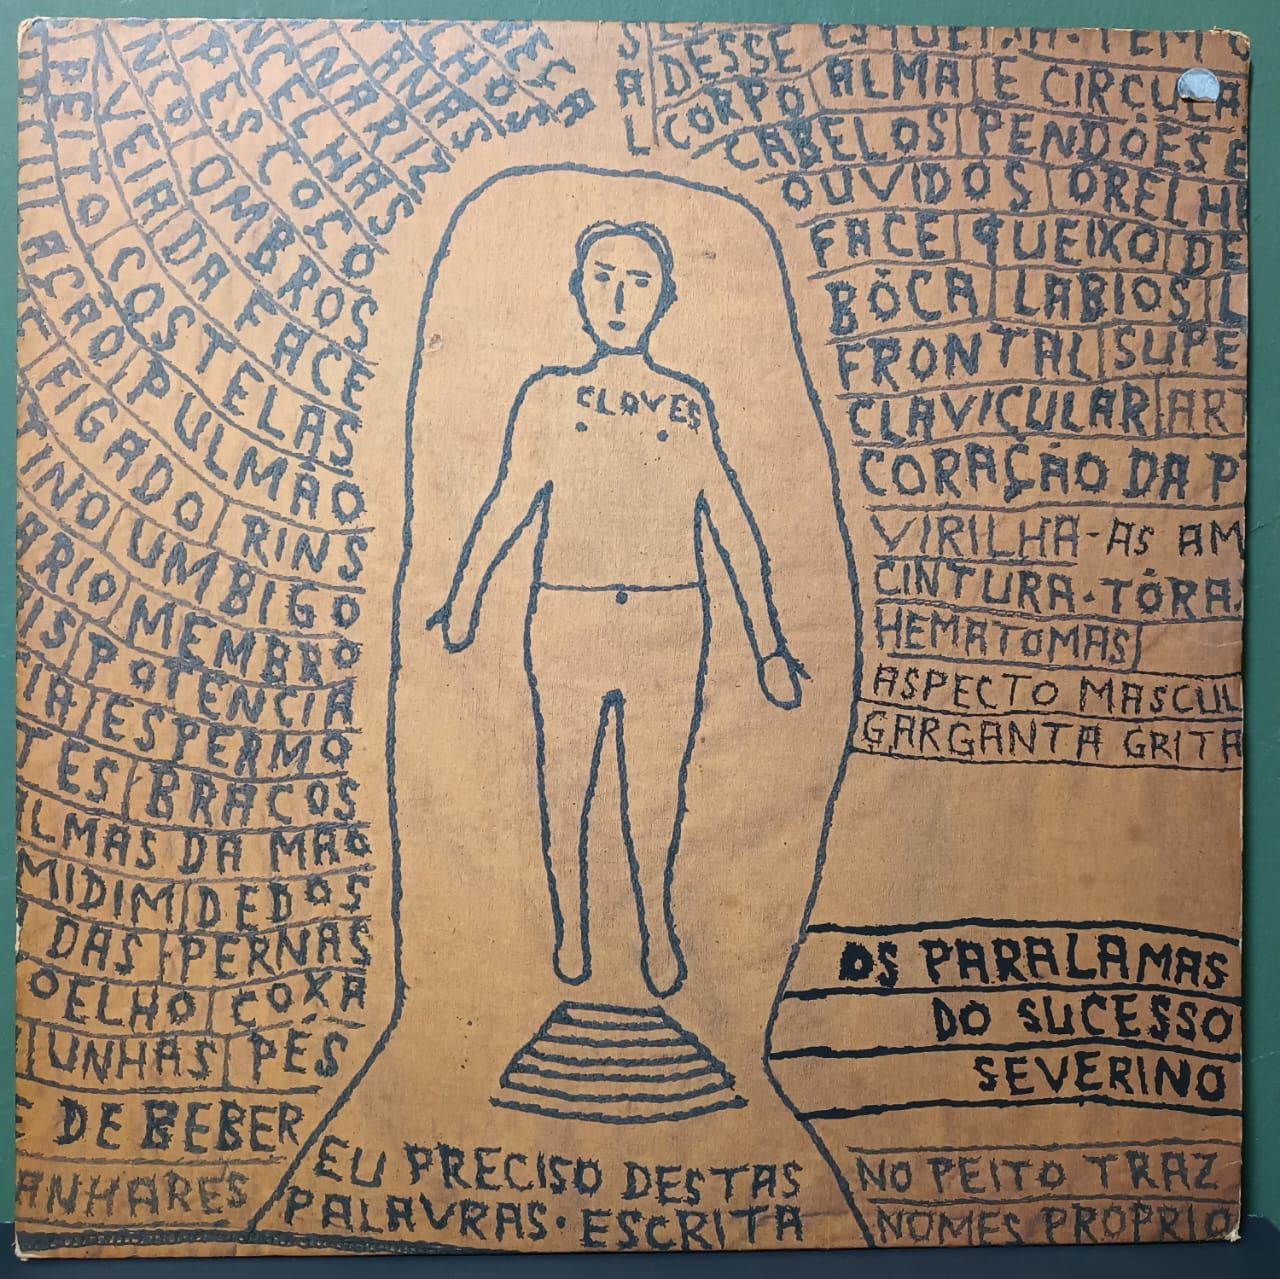 SECA
LHOS
ANAS
NARIZ
NCELHAS
PESCOÇO
OMBROS
VEIA DA FACE
PEITO COSTELAS
AÇÃO PULMÃO
FIGADO RINS
TINO UMBIGO
RIO MEMBRO
IS POTENCIA
IA ESPERMO
TES BRAÇOS
LMAS DA MÃO
MIDIM DEDOS
DAS PERNAS
OELHO COXA
UNHAS PÉS
E DE BEBER
ANHARES
SAL
DESSE
CORPO ALMA É CIRCULA
CABELOS PENDÕES E
OUVIDOS ORELH
FACE QUEIXO DE
BÔCA LABIOS L
FRONTAL SUPE
CLAVIÇULAR ART
CORAÇÃO DA P
VIRILHA - AS AM
CINTURA. TÓRA
HEMATOMAS
ASPECTO MASCUL
GARGANTA GRITA
CLOVES
OS PARALAMAS
DO SUCESSO
SEVERINO
EU PRECISO DESTAS
PALAVRAS. ESCRITA
NO PEITO TRAZ
NOMES PROPRIO